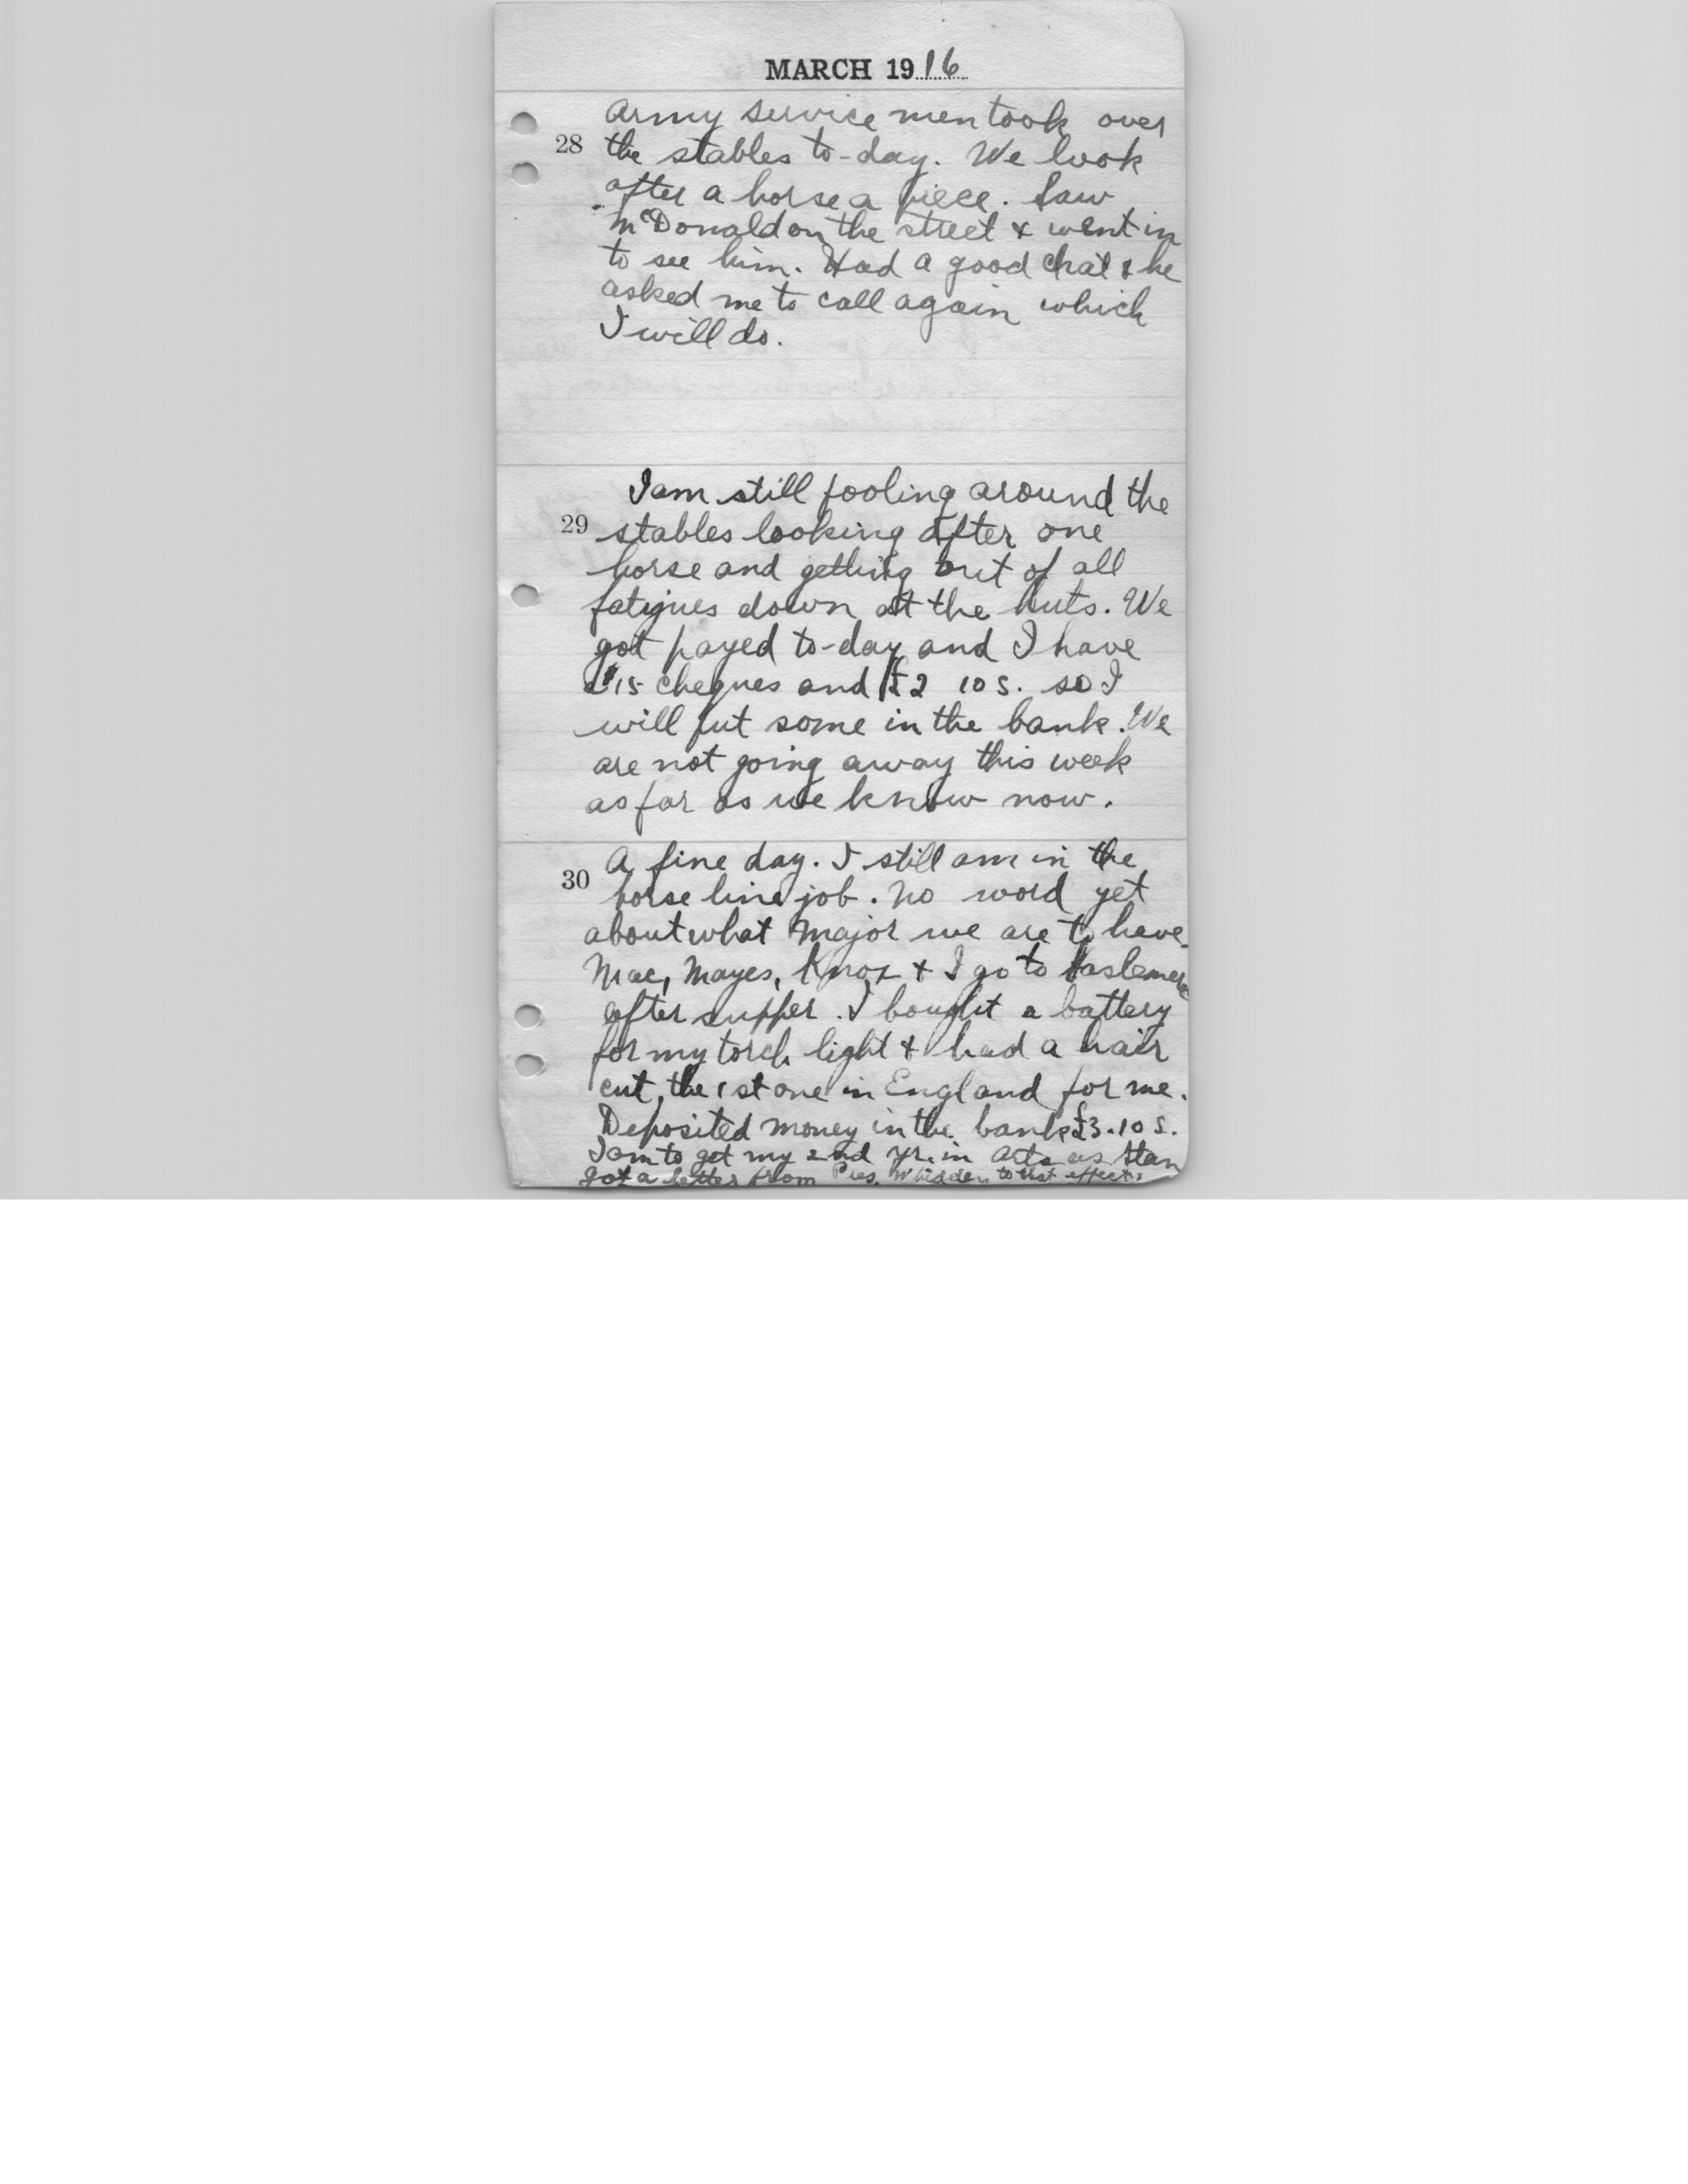 MARCH 1916
Army Service men took over
28 the stables to-day. We look
after a horse a piece. Saw
McDonald on the street & went in
to see him. Had a good chat & he
asked me to call again which
I will do.
I am still fooling around the
29 stables looking after one
horse and getting out of all
fatigues down at the huts. We
got payed to-day and I have
15 cheques and £2 10 s. so I
will put some in the bank. We
are not going away this week
as far as we know now.
A fine day. I still am in the
30 horse line job. No word yet
about what Major we are to have.
Mac, Mayes, Knox & I go to Haslemere
after supper. I bought a battery
for my torch light & had a hair
cut, the 1st one in England for me.
Deposited money in the bank £3.10 s.
I am to get my 2nd yr. in Arts as Stan
got a letter from Pres. Whidden to that effect.